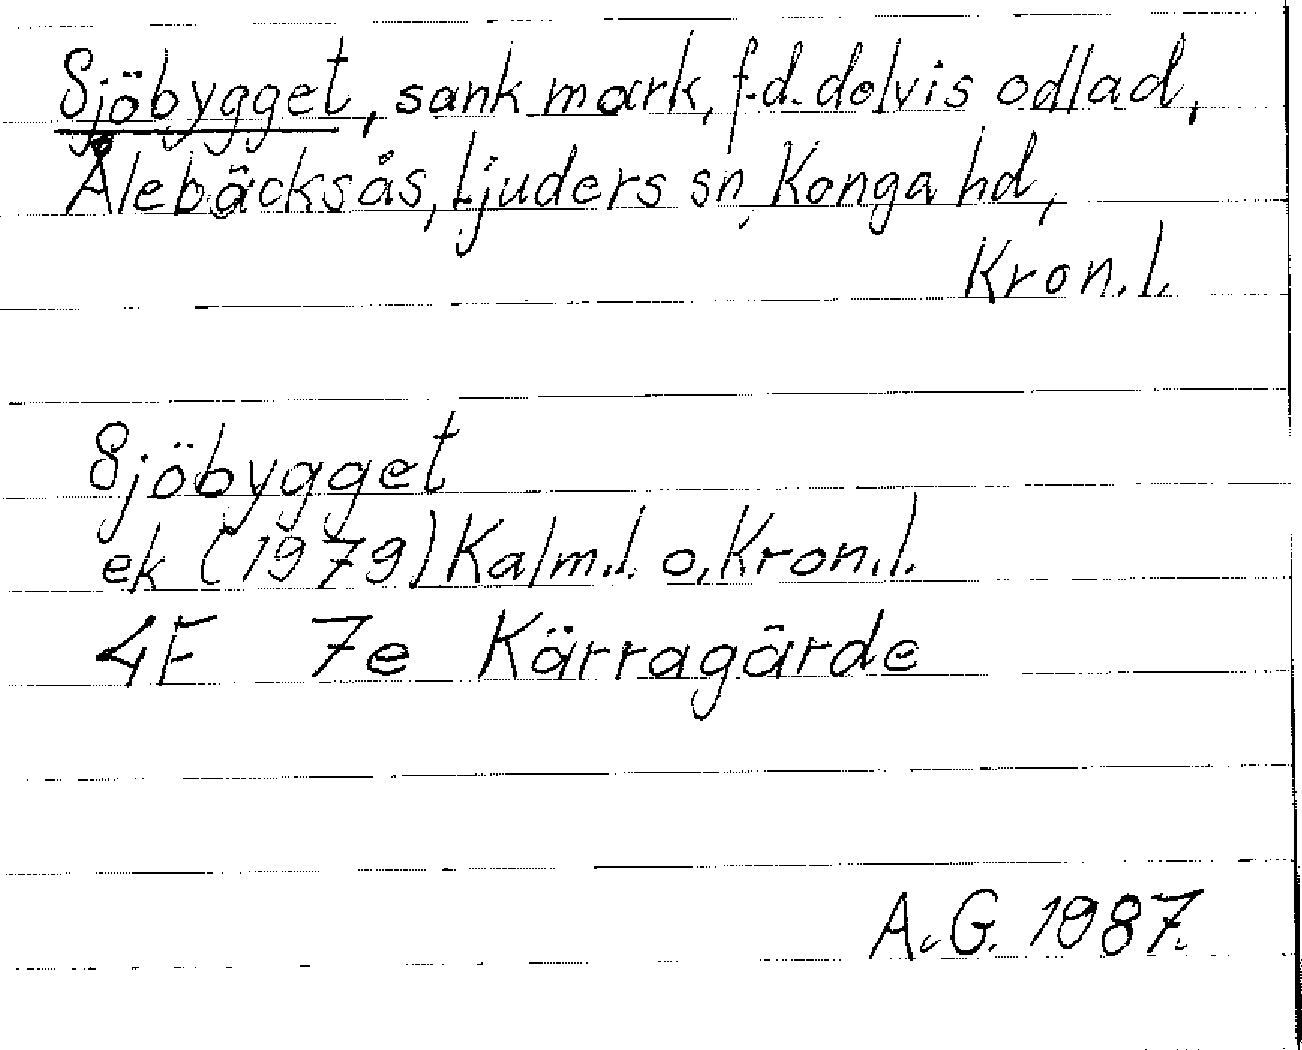 Sjöbygget, sank mark, f.d. delvis odlad,
Ålebäcksås, Ljuders sn, Konga hd,
Kron.l.
Sjöbygget
ek (1979) Kalm.l. o. Kron.l.
4F 7e Kärragärde
A.G. 1987.